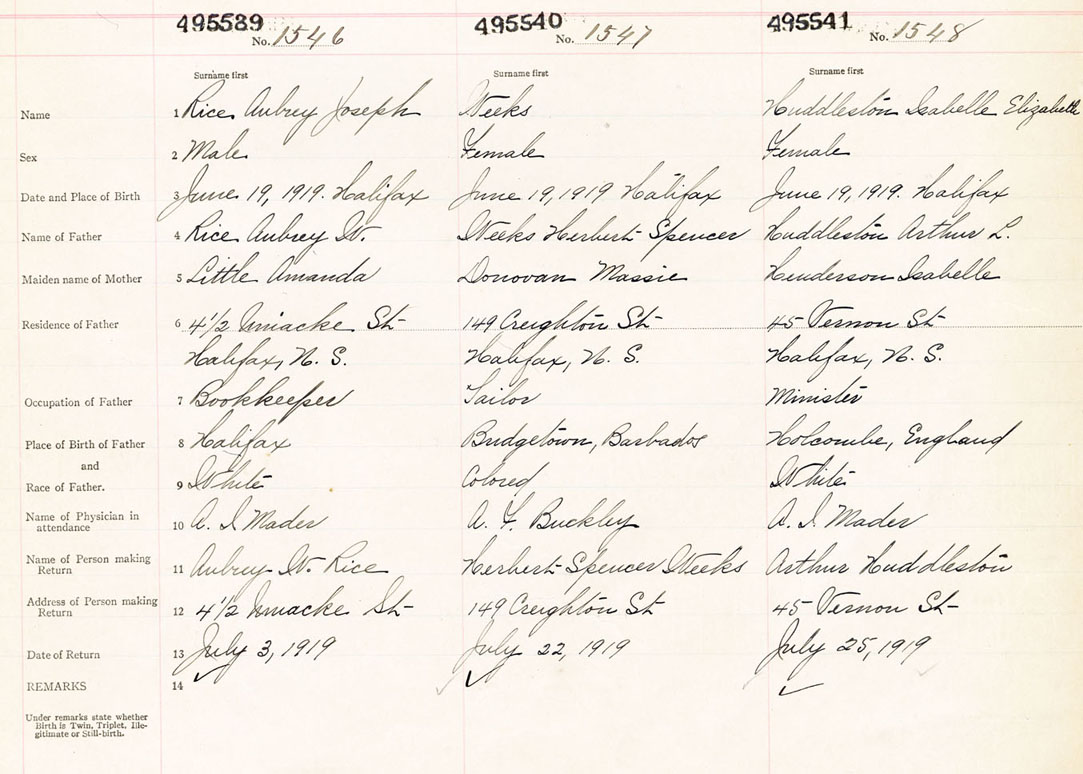 495539 No. 1546 495540 No. 1547 495541 No. 1548
Surname first Surname first Surname first
Name 1 Rice Aubrey Joseph Weeks Huddleston Isabelle Elizabeth
Sex 2 Male Female Female
Date and Place of Birth 3 June 19, 1919. Halifax June 19, 1919 Halifax June 19, 1919. Halifax
Name of Father 4 Rice Aubrey W. Weeks Herbert Spencer Huddleston Arthur L.
Maiden name of Mother 5 Little Amanda Donovan Massie Henderson Isabelle
Residence of Father 6 4 1/2 Uniacke St 149 Creighton St 45 Vernon St
Halifax, N. S. Halifax, N. S. Halifax, N. S.
Occupation of Father 7 Bookkeeper Tailor Minister
Place of Birth of Father 8 Halifax Bridgetown, Barbados Holcombe, England
and
Race of Father. 9 White Colored White
Name of Physician in
attendance 10 A. I Mader A. F. Buckley A. I. Mader
Name of Person making
Return 11 Aubrey W. Rice Herbert Spencer Weeks Arthur Huddleston
Address of Person making
Return 12 4 1/2 Uniacke St 149 Creighton St 45 Vernon St
Date of Return 13 July 3, 1919 July 22, 1919 July 25, 1919
REMARKS 14
Under remarks state whether
Birth is Twin, Triplet, Ille-
gitimate or Still-birth.